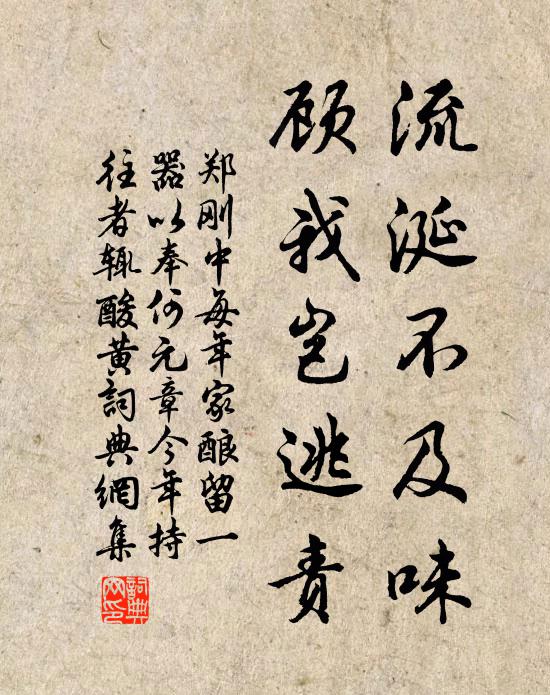 流涎不及味
顾我岂逃责
郑刚中每年家酿留一
器以奉何元章今年持
往者辄酸黄詞典網集
詞典网印